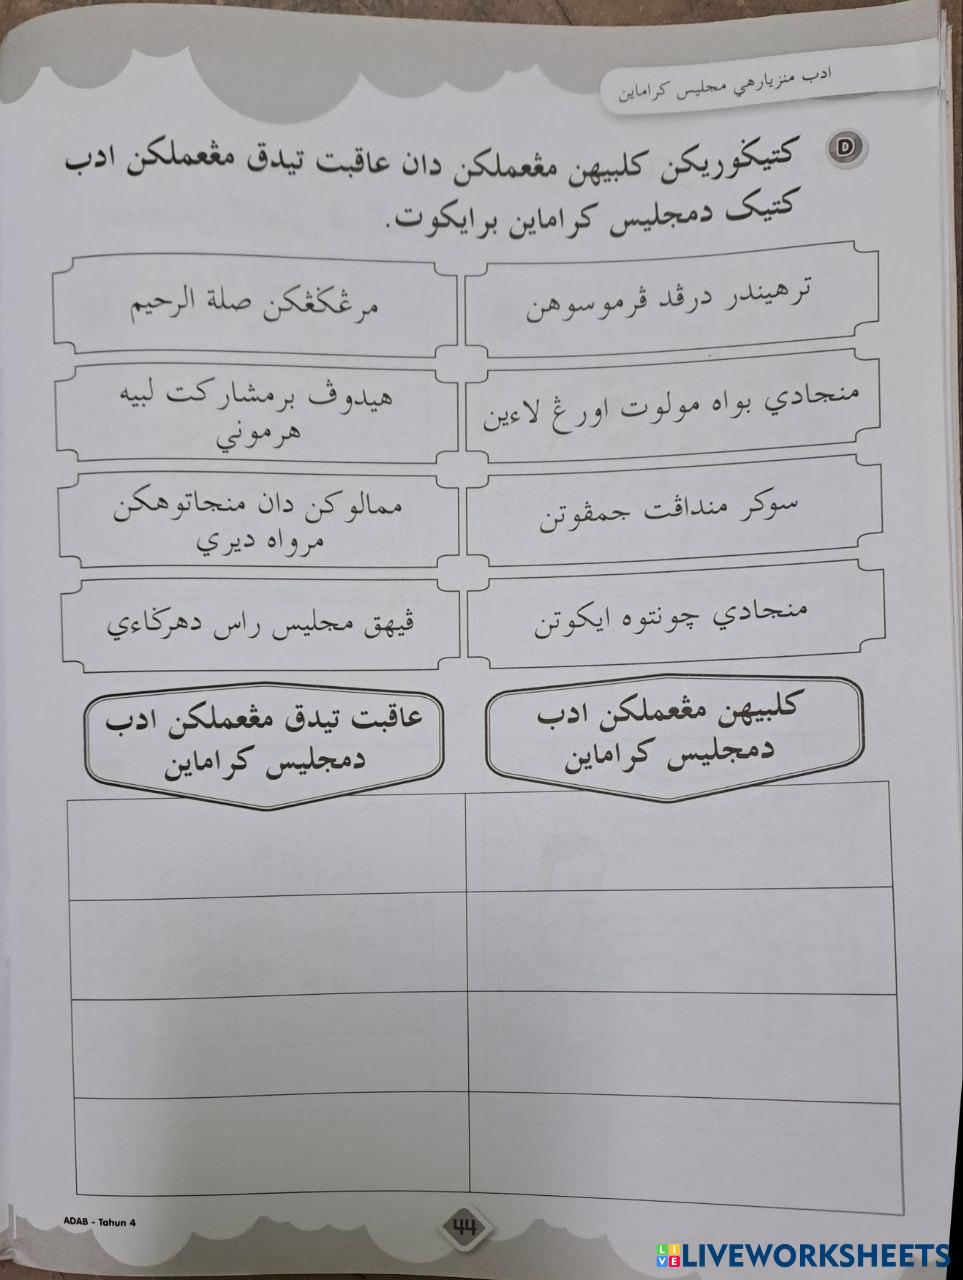 ادب منزيارهي مجليس كراماين
D
كتيݢوريكن كلبيهن مڠعملكن دان عاقبت تيدق مڠعملكن ادب
كتيک دمجليس كراماين برايكوت.
ترهيندر درڤد ڤرموسوهن
مرڠݢڠكن صلة الرحيم
منجادي بواه مولوت اورڠ لاءين
هيدوڤ برمشاركت لبيه
هرموني
سوكر منداڤت جمڤوتن
ممالوكن دان منجاتوهكن
مرواه ديري
منجادي چونتوه ايكوتن
ڤيهق مجليس راس دهرݢاءي
كلبيهن مڠعملكن ادب
دمجليس كراماين
عاقبت تيدق مڠعملكن ادب
دمجليس كراماين
ADAB - Tahun 4
٤٤
LIVEWORKSHEETS